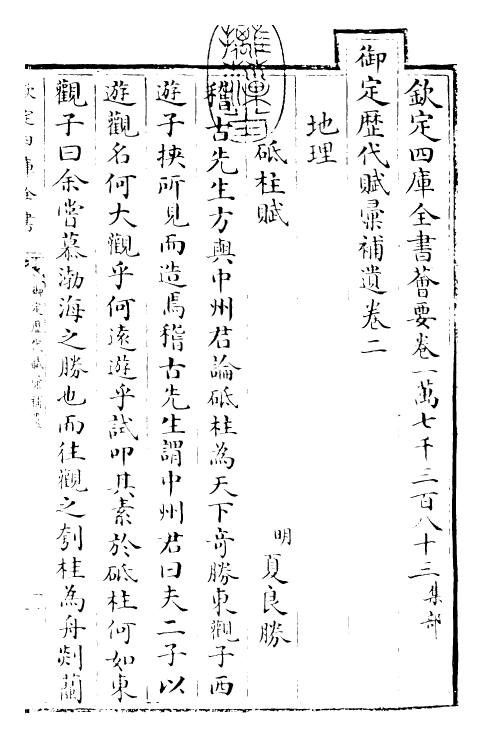 欽定四庫全書薈要卷一萬七千三百八十三集部
御定歷代賦彙補遺卷二
地理
砥柱賦
明 夏良勝
稽古先生方與中州君論砥柱為天下竒勝東觀子西
遊子挾所見而造焉稽古先生謂中州君曰夫二子以
遊觀名何大觀乎何遠遊乎試叩其素於砥柱何如東
觀子曰余嘗慕渤海之勝也而往觀之刳桂為舟剡蘭
欽定四庫全書